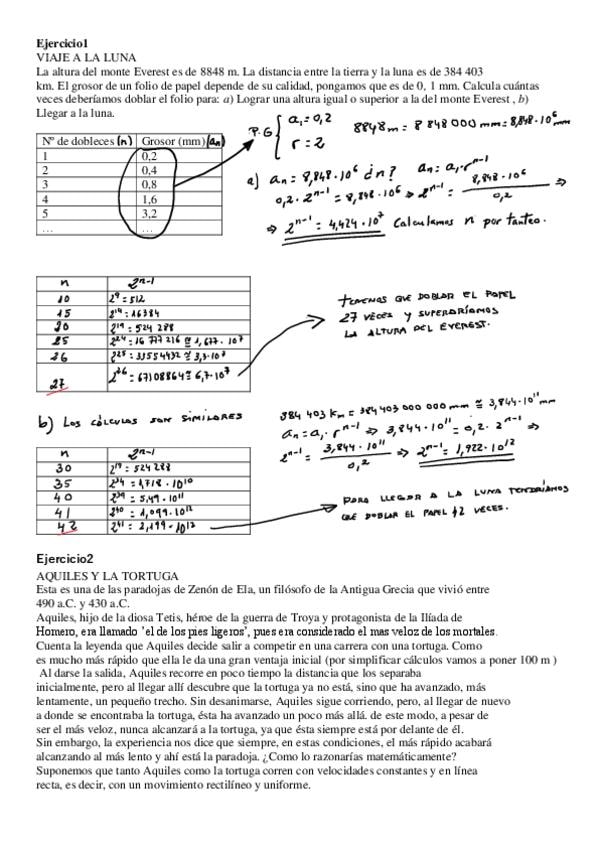 Ejercicio1
VIAJE A LA LUNA
La altura del monte Everest es de 8848 m. La distancia entre la tierra y la luna es de 384 403
km. El grosor de un folio de papel depende de su calidad, pongamos que es de 0, 1 mm. Calcula cuántas
veces deberíamos doblar el folio para: a) Lograr una altura igual o superior a la del monte Everest , b)
Llegar a la luna.
P.G { a₁ = 0,2
r = 2
8848m = 8 848 000 mm = 8,848·10⁶ mm
Nº de dobleces (n) Grosor (mm) (aₙ)
1 0,2
2 0,4
3 0,8
4 1,6
5 3,2
… …
a) aₙ = 8,848·10⁶ ¿n? aₙ = a₁·rⁿ⁻¹
0,2·2ⁿ⁻¹ = 8,848·10⁶ ⇒ 2ⁿ⁻¹ = 8,848·10⁶ / 0,2 ⇒
⇒ 2ⁿ⁻¹ = 4,424·10⁷ Calculamos n por tanteo.
n 2ⁿ⁻¹
10 2⁹ = 512
15 2¹⁴ = 16384
20 2¹⁹ = 524 288
25 2²⁴ = 16 777 216 ≅ 1,677·10⁷
26 2²⁵ = 33554432 ≅ 3,3·10⁷
27 2²⁶ = 67108864 ≅ 6,7·10⁷
TENEMOS QUE DOBLAR EL PAPEL
27 VECES Y SUPERARÍAMOS
LA ALTURA DEL EVEREST.
b) LOS CÁLCULOS SON SIMILARES
384 403 Km = 384 403 000 000 mm ≅ 3,844·10¹¹ mm
aₙ = a₁·rⁿ⁻¹ ⇒ 3,844·10¹¹ = 0,2·2ⁿ⁻¹ ⇒
2ⁿ⁻¹ = 3,844·10¹¹ / 0,2 ⇒ 2ⁿ⁻¹ = 1,922·10¹²
n 2ⁿ⁻¹
30 2¹⁹ = 524 288
35 2³⁴ = 1,718·10¹⁰
40 2³⁹ = 5,49·10¹¹
41 2⁴⁰ = 1,099·10¹²
42 2⁴¹ = 2,199·10¹²
PARA LLEGAR A LA LUNA TENDRÍAMOS
QUE DOBLAR EL PAPEL 42 VECES.
Ejercicio2
AQUILES Y LA TORTUGA
Esta es una de las paradojas de Zenón de Ela, un filósofo de la Antigua Grecia que vivió entre
490 a.C. y 430 a.C.
Aquiles, hijo de la diosa Tetis, héroe de la guerra de Troya y protagonista de la Ilíada de
Homero, era llamado 'el de los pies ligeros', pues era considerado el mas veloz de los mortales.
Cuenta la leyenda que Aquiles decide salir a competir en una carrera con una tortuga. Como
es mucho más rápido que ella le da una gran ventaja inicial (por simplificar cálculos vamos a poner 100 m )
Al darse la salida, Aquiles recorre en poco tiempo la distancia que los separaba
inicialmente, pero al llegar allí descubre que la tortuga ya no está, sino que ha avanzado, más
lentamente, un pequeño trecho. Sin desanimarse, Aquiles sigue corriendo, pero, al llegar de nuevo
a donde se encontraba la tortuga, ésta ha avanzado un poco más allá. de este modo, a pesar de
ser el más veloz, nunca alcanzará a la tortuga, ya que ésta siempre está por delante de él.
Sin embargo, la experiencia nos dice que siempre, en estas condiciones, el más rápido acabará
alcanzando al más lento y ahí está la paradoja. ¿Como lo razonarías matemáticamente?
Suponemos que tanto Aquiles como la tortuga corren con velocidades constantes y en línea
recta, es decir, con un movimiento rectilíneo y uniforme.